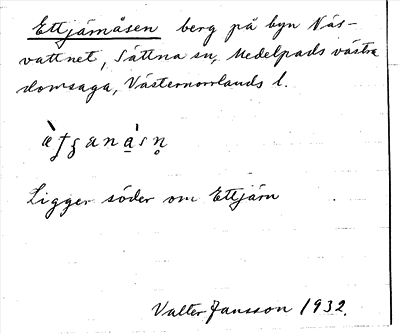 Ettjärnåsen berg på byn Näs-
vattnet, Sättna sn, Medelpads västra
domsaga, Västernorrlands l.
Ligger söder om Ettjärn
Valter Jansson 1932.